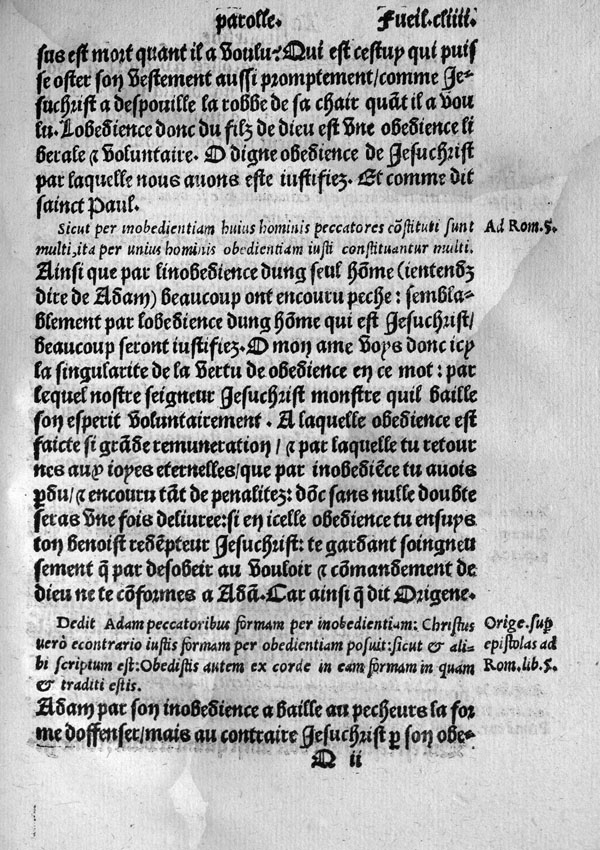 parolle. Fueil.cliiii.
sus est mort quant il a voulu? Qui est cestuy qui puis
se oster son vestement aussi promptement/comme Je-
suchrist a despouille la robbe de sa chair quāt il a vou
lu. Lobedience donc du filz de dieu est vne obedience li
berale ⁊ voluntaire. O digne obedience de Jesuchrist
par laquelle nous auons este iustifiez. Et comme dit
sainct Paul.
Sicut per inobedientiam huius hominis peccatores cōstituti sunt Ad Rom. 5.
multi, ita per unius hominis obedientiam iusti constituantur multi.
Ainsi que par linobedience dung seul hōme (ientendz
dire de Adam) beaucoup ont encouru peche: sembla-
blement par lobedience dung hōme qui est Jesuchrist/
beaucoup seront iustifiez. O mon ame voys donc icy
la singularite de la vertu de obedience en ce mot: par
lequel nostre seigneur Jesuchrist monstre quil baille
son esperit voluntairement. A laquelle obedience est
faicte si grāde remuneration/⁊ par laquelle tu retour
nes aux ioyes eternelles/que par inobediēce tu auois
ꝑdu/⁊ encouru tāt de penalitez: dōc sans nulle doubte
seras vne fois deliuree: si en icelle obedience tu ensuys
ton benoist redēpteur Jesuchrist: te gardant soingneu
sement q̄ par desobeir au vouloir ⁊ cōmandement de
dieu ne te cōformes a Adā. Car ainsi q̄ dit Origene.
Dedit Adam peccatoribus formam per inobedientiam: Christus Orige. sup̄
uerò econtrario iustis formam per obedientiam posuit: sicut & ali- epistolas ad
bi scriptum est: Obedistis autem ex corde in eam formam in quam Rom. lib. 5.
& traditi estis.
Adam par son inobedience a baille au pecheurs la for
me doffenser/mais au contraire Jesuchrist ꝑ son obe-
Q ii